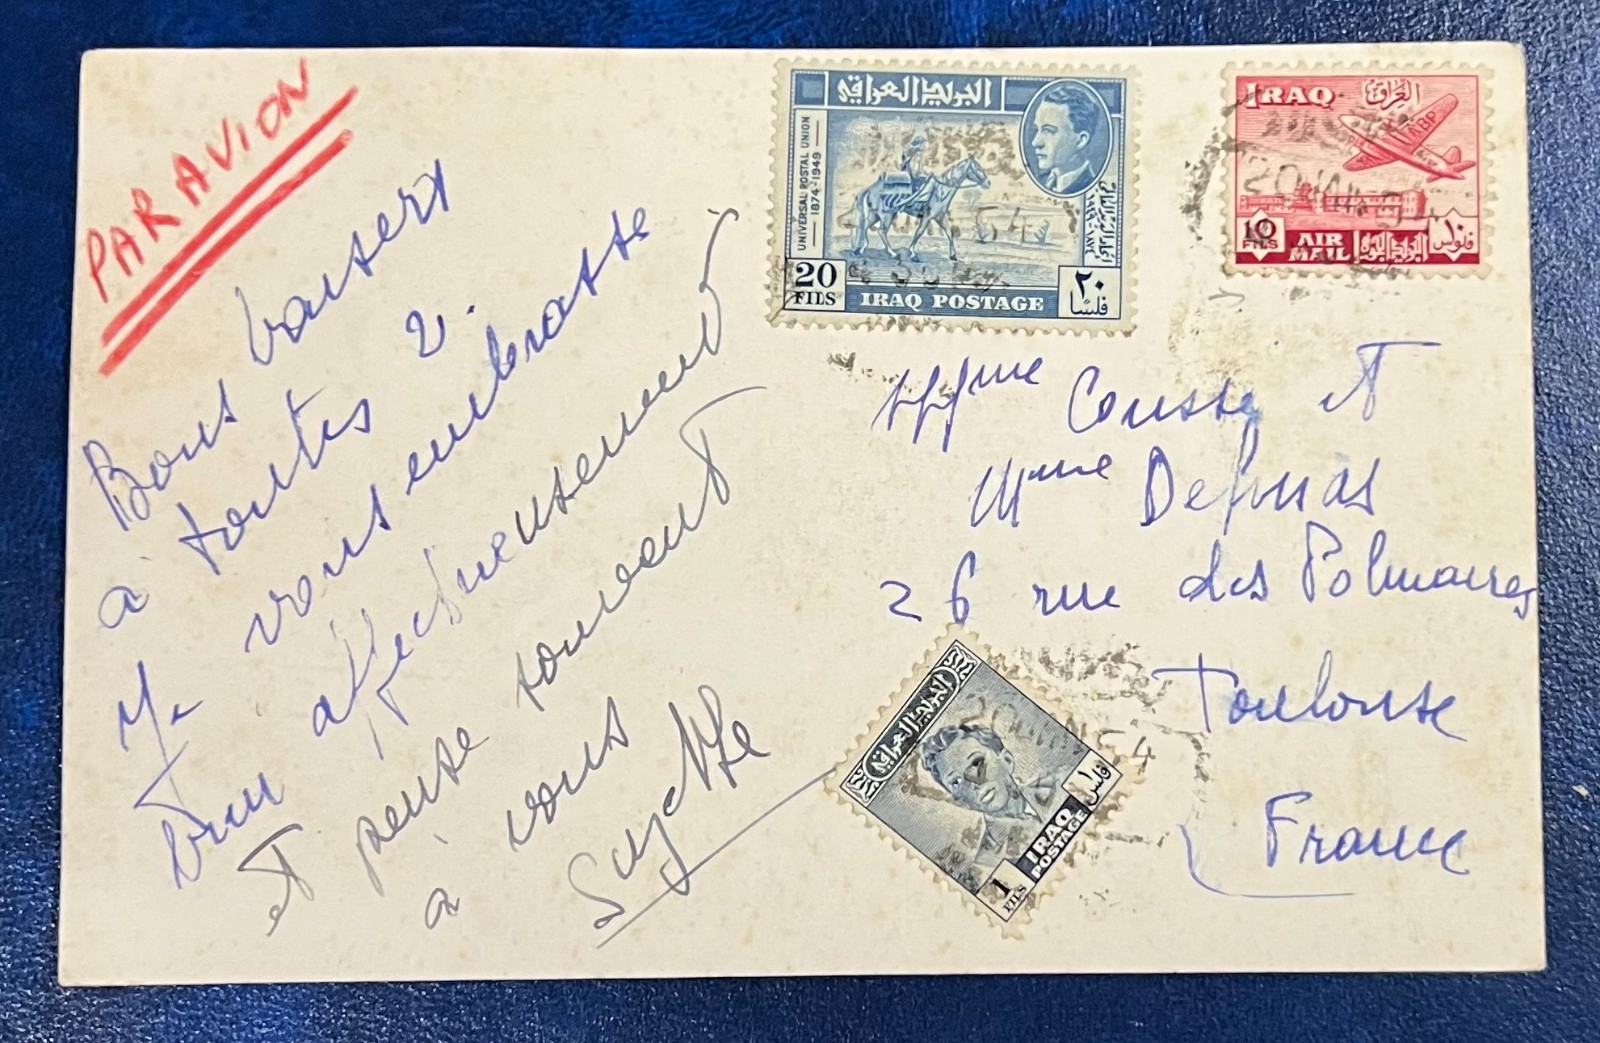 PAR AVION
Bons baisers
à toutes 2.
Je vous embrasse
bien affectueusement
et pense souvent
à vous
Suzette
البريد العراقي
UNIVERSAL POSTAL UNION
1874-1949
20
FILS
IRAQ POSTAGE
٢٠
فلسا
IRAQ
العراق
ABP
10
FILS
AIR
MAIL
البريد الجوي
١٠
فلوس
20 JAN 54
Mme et
Mme
26 rue des
Toulouse
France
البريد العراقي
1
FILS
IRAQ
POSTAGE
١
فلس
20 JAN 54